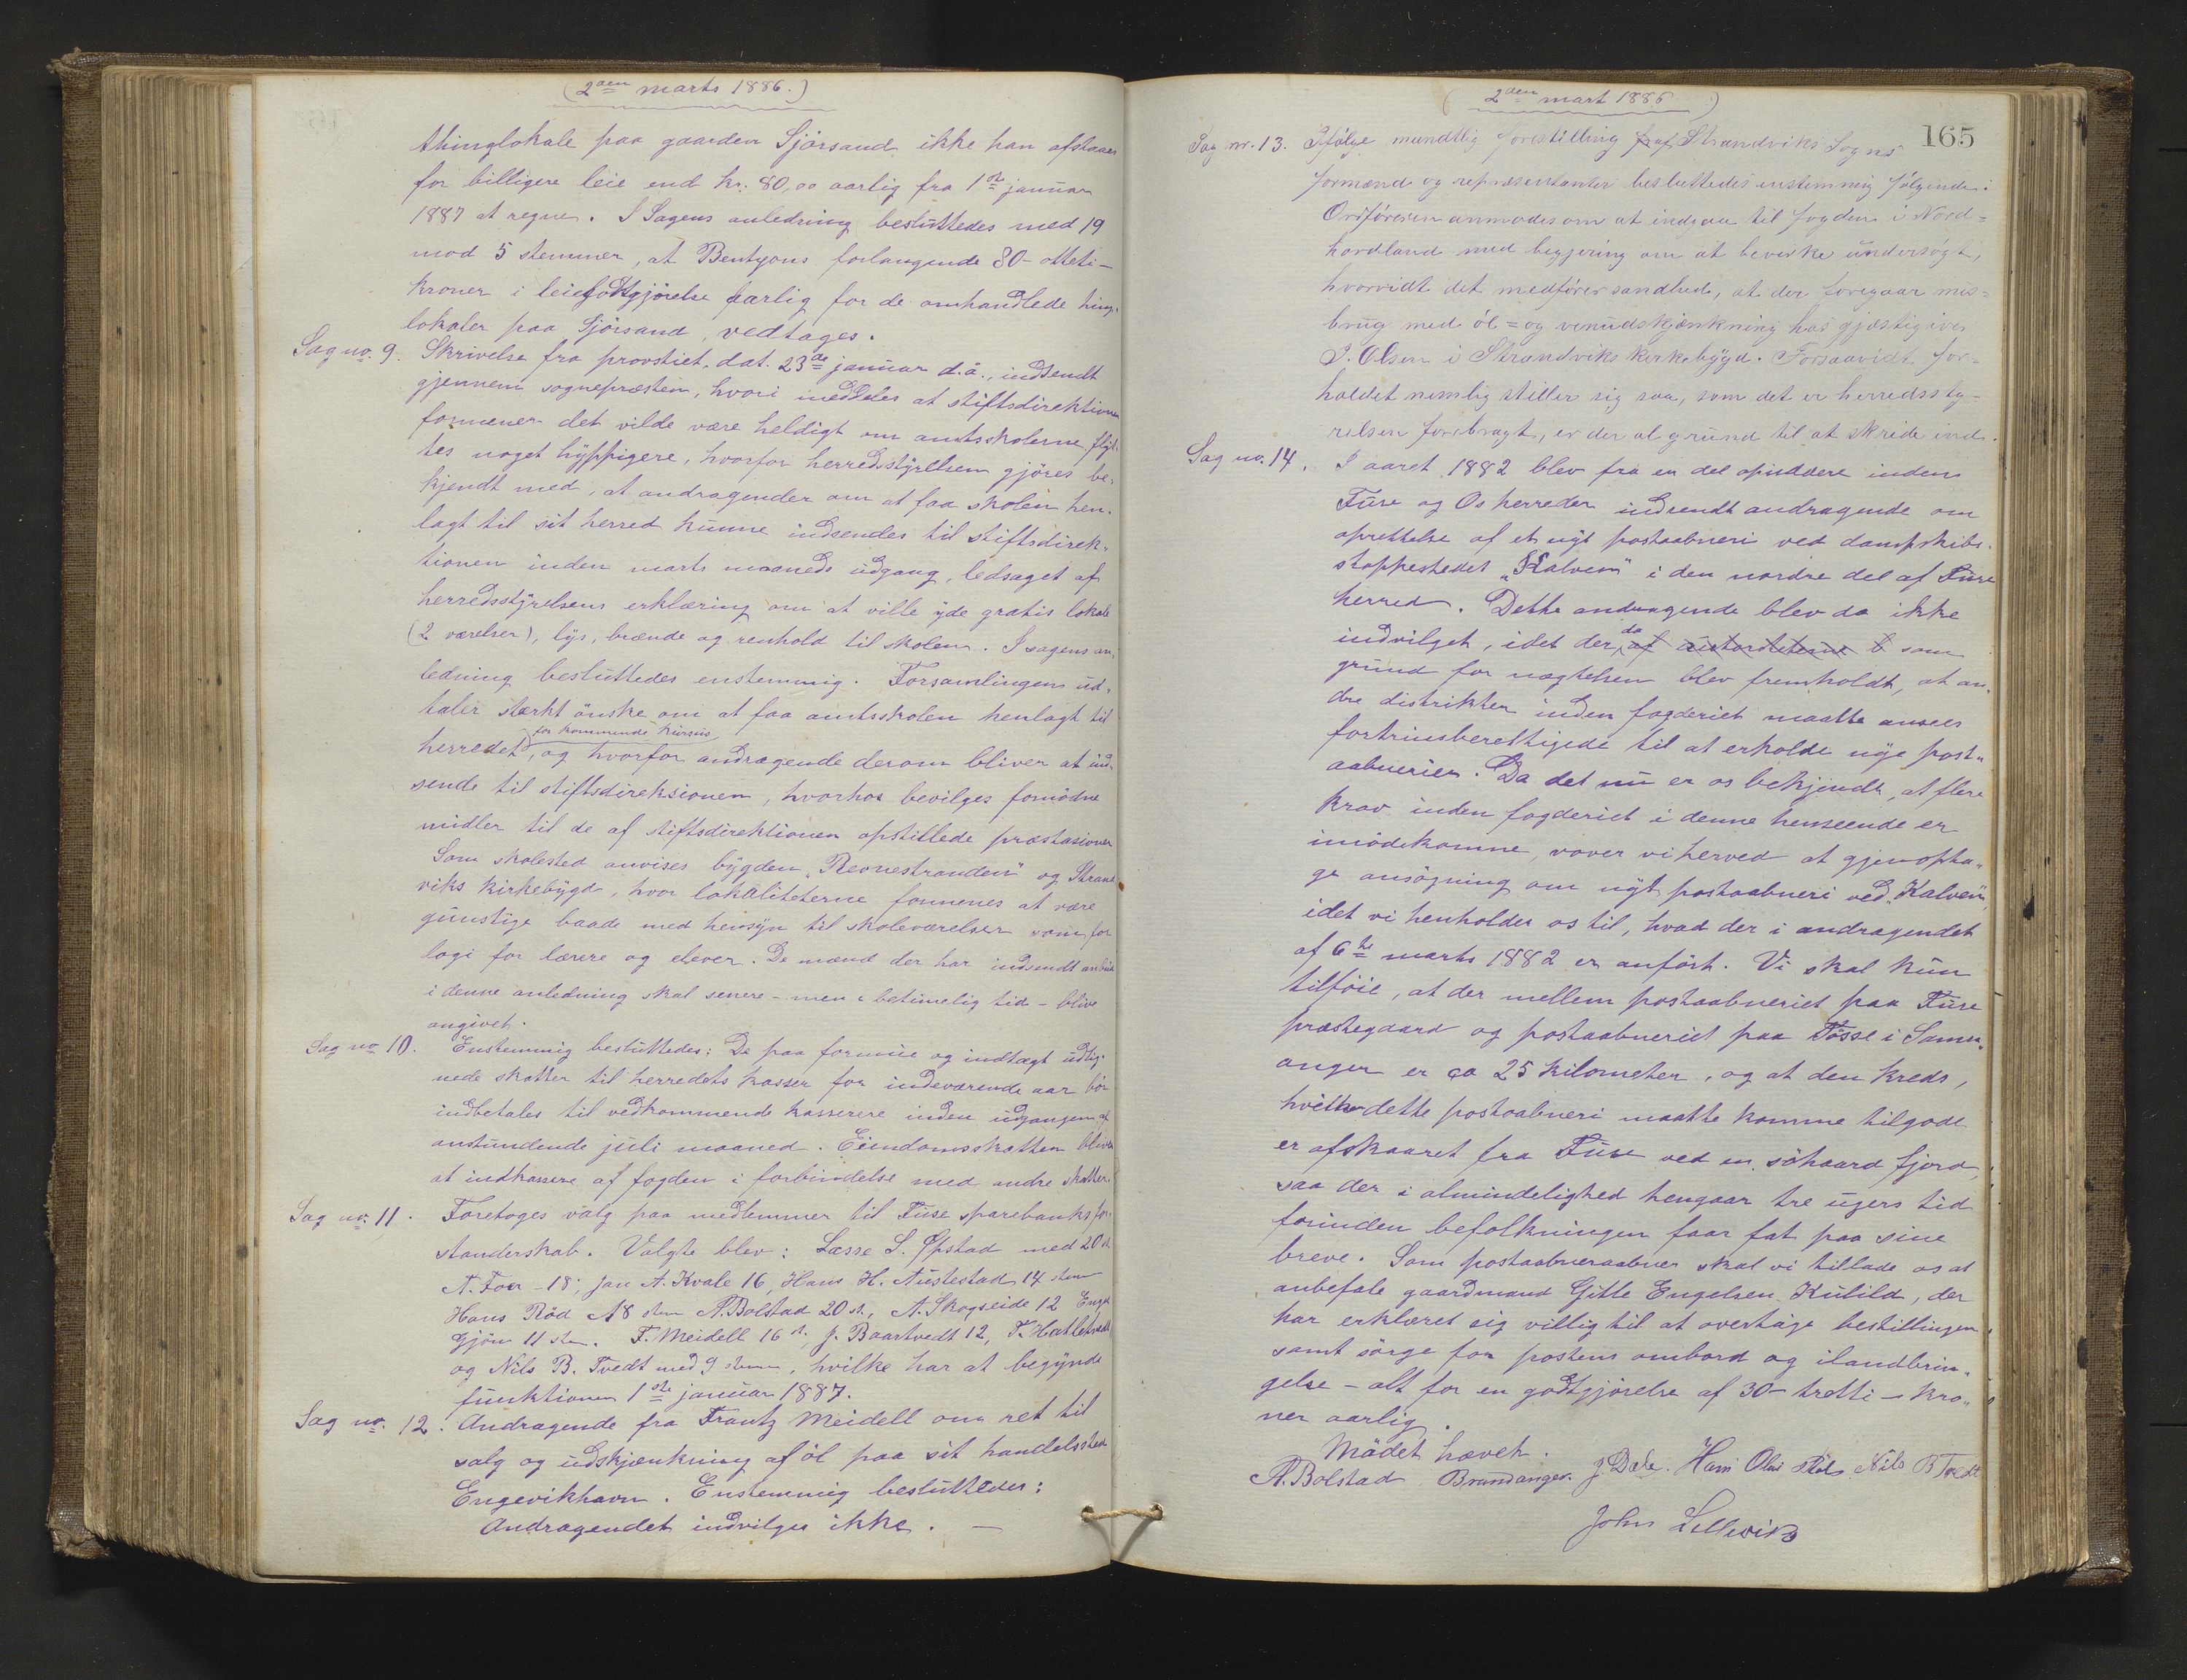 (2den marts 1886.)
thinglokale paa gaarden Sjörsand ikke kan afstaaes
for billigere leie end kr. 80,00 aarlig fra 1ste januar
1887 at regne. I Sagens anledning besluttedes med 19
mod 5 stemmer, at Bentzons forlangende 80 - otteti -
kroner i leiegodtgjörelse aarlig for de omhandlede thing-
lokaler paa Sjörsand, vedtages.
Sag no. 9. Skrivelse fra provstiet, dat. 23de januar d.å., indsendt
gjennem sognepræsten, hvori meddeles at stiftsdirektionen
formener det vilde være heldigt om amtsskolerne flyt-
tes noget hyppigere, hvorfor herredsstyrelsen gjöres be-
kjendt med, at andragender om at faa skolen hen-
lagt til sit herred kunne indsendes til stiftsdirek-
tionen inden marts maaneds udgang, ledsaget af
herredsstyrelsens erklæring om at ville yde gratis lokale
(2 værelser), lys, brænde og renhold til skolen. I sagens an-
ledning besluttedes enstemmig. Forsamlingen ud-
taler stærkt önske om at faa amtsskolen henlagt til
for kommende kursus
herredet, og hvorfor andragende derom bliver at ind-
sende til stiftsdireksionen, hvorhos bevilges fornödne
midler til de af stiftsdirektionen opstillede præstasioner
Som skolested anvises bygden "Revnestranden" og Strand
viks kirkebygd, hvor lokaliteterne formenes at være
gunstige baade med hensyn til skoleværelser som for
logi for lærere og elever. De mænd der har indsendt anbud
i denne anledning skal senere - men i betimelig tid - blive
angivet.
Sag no 10. Enstemmig besluttedes: De paa formue og indtægt udlig-
nede skatter til herredets kasser for indeværende aar bör
indbetales til vedkommende kasserere inden udgangen af
anstundende juli maaned. Eiendomsskatten bliver
at indkassere af fogden i forbindelse med andre skatter.
Sag no. 11. Foretoges valg paa medlemmer til Fuse sparebanks for-
standerskab. Valgte blev: Lasse L. Öpstad med 20 st.
N. Foer - 18, Jan A. Kvale 16, Hans H. Austestad 14 stem
Hans Röd 18 stem N. Bolstad 20 st., A. Skogseide 12 Engel
Gjön 11 stm. F. Meidell 16 st. J. Baartvedt 12, T. Hatletvedt
og Nils B. Tvedt med 9 stem, hvilke har at begynde
funktionen 1ste januar 1887.
Sag no. 12. Andragende fra Frantz Meidell om ret til
salg og udskjænkning af öl paa sit handelssted
Engevikhavn. Enstemmig besluttedes:
Andragendet indvilges ikke. -
(2den mart 1886)
165
Sag nr. 13. Ifölge mundtlig forestilling af Strandviks Sogns
formænd og repræsentanter besluttedes enstemmig fölgende:
Ordföreren anmodes om at indgaa til fogden i Nord=
hordland med begjering om at bevirke undersögt,
hvorvidt det medförer sandhed, at der foregaar mis=
brug med öl= og vinudskjænkning hos gjæstgiver
J. Olsen i Strandviks kirkebygd. Forsaavidt for=
holdet nemlig stiller sig saa, som det er herredssty-
relsen forebragt, er der al grund til at skride ind.
Sag no. 14. I aaret 1882 blev fra en del opsiddere inden
Fuse og Os herreder indsendt andragende om
oprettelse af et nyt postaabneri ved dampskibs-
stoppestedet "Kalven" i den nordre del af Fuse
herred. Dette andragende blev da ikke
indvilget, idet der, da af autoriteterne som
grund for nægtelsen blev fremholdt, at an-
dre distrikter inden fogderiet maatte ansees
fortrinsberettigede til at erholde nye post-
aabnerier. Da det nu er os bekjendt, at flere
krav inden fogderiet i denne henseende er
imödekomne, vover vi herved at gjenopta-
ge ansögning om nyt postaabneri ved "Kalven",
idet vi henholder os til, hvad der i andragendet
af 6te marts 1882 er anfört. Vi skal kun
tilföie, at der mellem postaabneriet paa Fuse
præstegaard og postaabneriet paa Tösse i Samn-
anger er ca 25 kilometer, og at den kreds,
hvilke dette postaabneri maatte komme tilgode
er afskaaret fra Fuse ved en söhaard fjord,
saa der i almindelighed hengaar tre ugers tid
forinden befolkningen faar fat paa sine
breve. Som postaabneraabner skal vi tillade os at
anbefale gaardmand Gitle Engelsen Kulild, der
har erklæret sig villig til at overtage bestillingen,
samt sörge for postens ombord og ilandbrin-
gelse - alt for en godtgjörelse af 30 - tretti - kro-
ner aarlig.
Mödet hævet.
N. Bolstad Brandanger. J Dale. Hans Olai Nils B Tvedt
John Lellevik